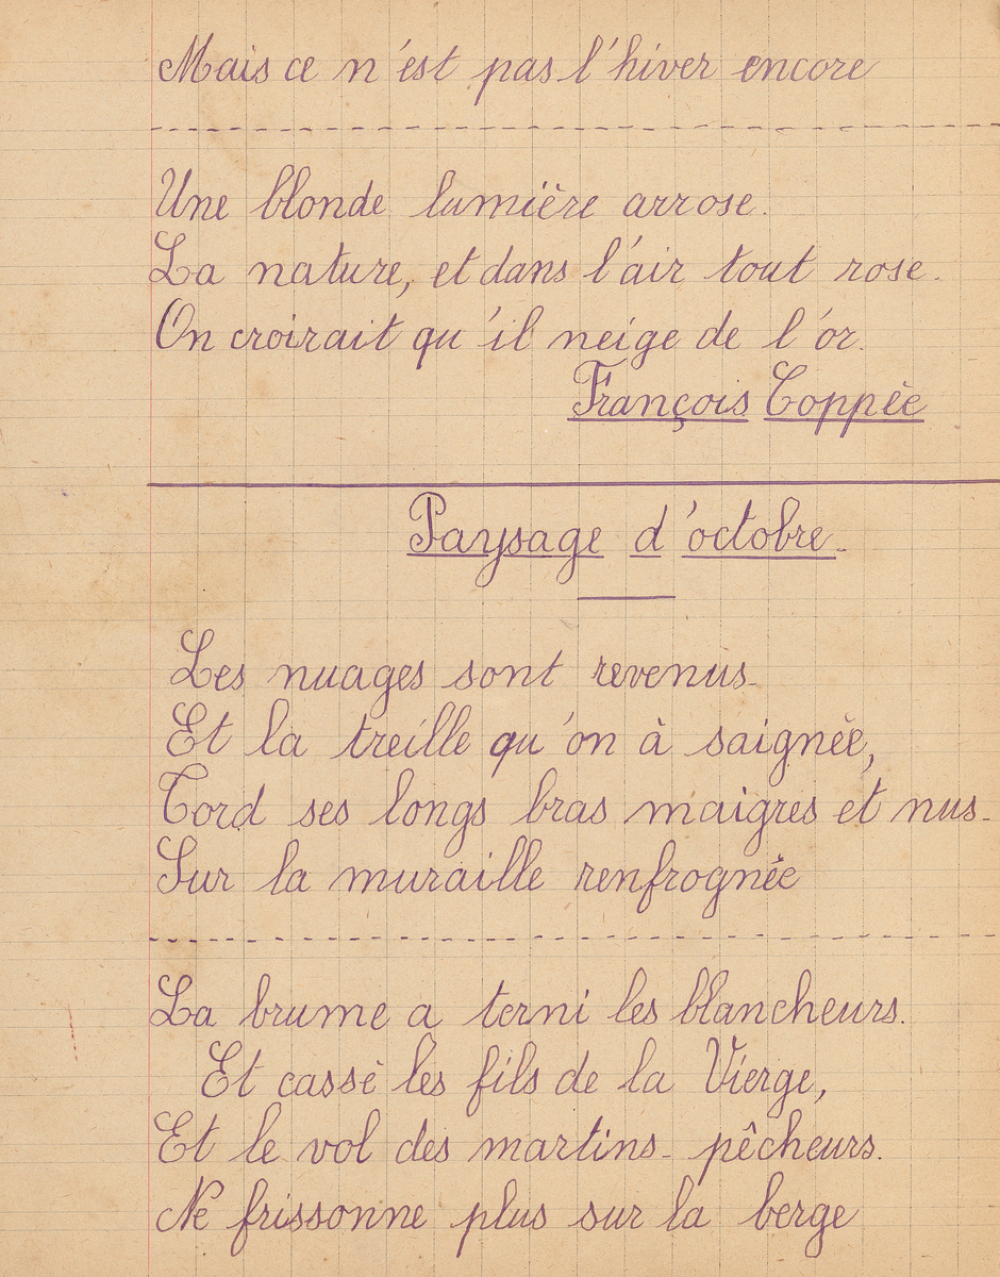 Mais ce n'est pas l'hiver encore
Une blonde lumière arrose.
La nature, et dans l'air tout rose.
On croirait qu'il neige de l'or.
François Coppée
Paysage d'octobre.
Les nuages sont revenus
Et la treille qu'on à saignée,
Tord ses longs bras maigres et nus.
Sur la muraille renfrognée
La brume a terni les blancheurs.
Et cassé les fils de la Vierge,
Et le vol des martins-pêcheurs.
Ne frissonne plus sur la berge